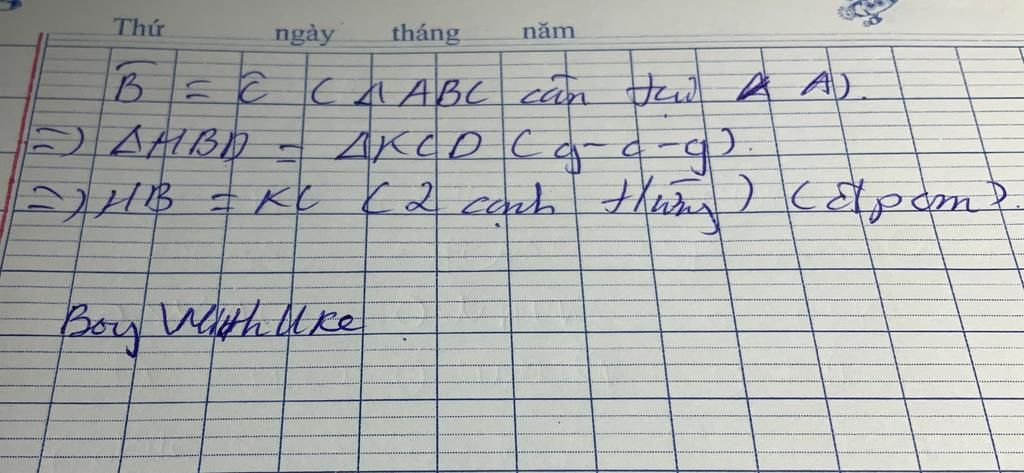 Thứ ngày tháng năm
B̂ = Ĉ ( Δ ABC cân tại A).
=> ΔHBD = ΔKCD ( g-c-g).
=> HB = KC ( 2 cạnh tương ứng ) ( đpcm ).
Boy With Uke